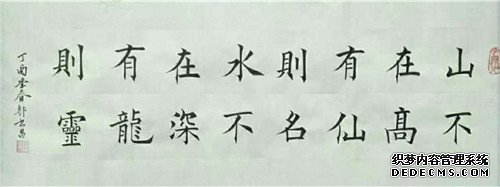 山不
在高
有仙
則名
水不
在深
有龍
則靈
丁酉季春
织梦内容管理系统
DEDECMS.COM